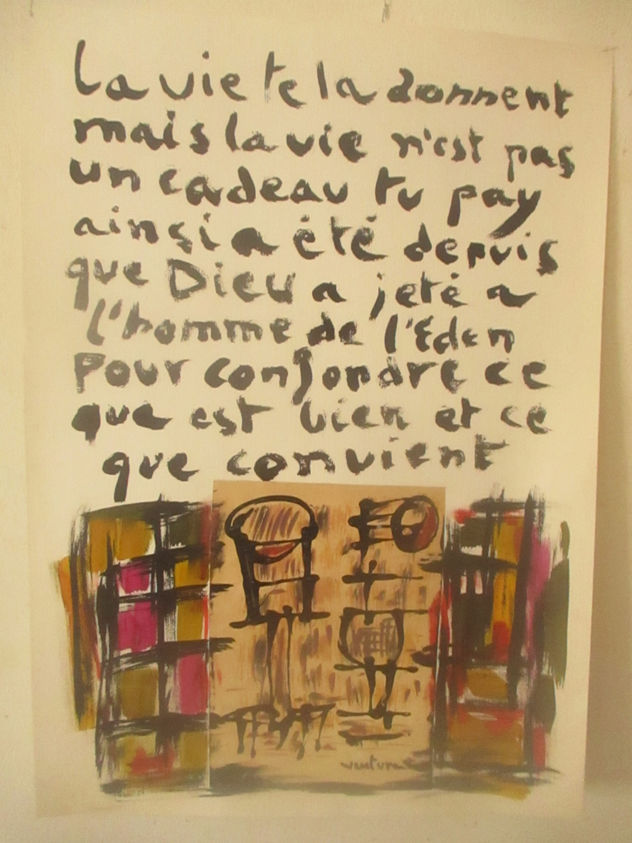 La vie te la donnent
mais la vie n'est pas
un cadeau tu pay
ainsi a été depuis
que Dieu a jeté a
l'homme de l'Eden
Pour confondre ce
que est bien et ce
que convient
ventura